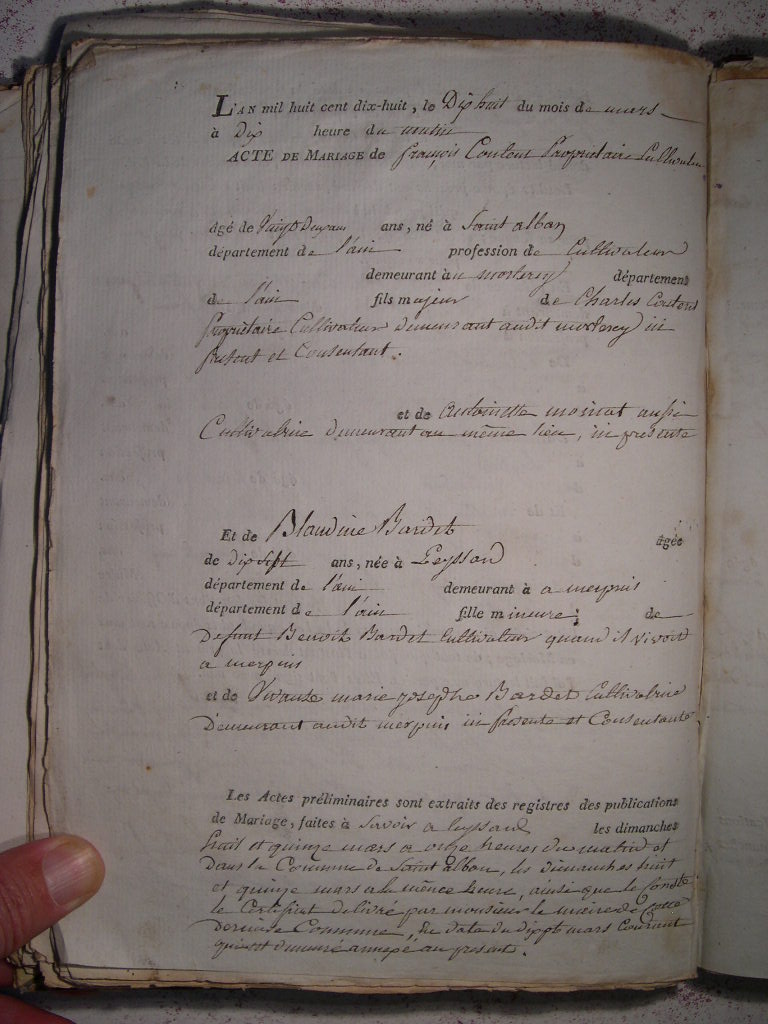 L'AN mil huit cent dix-huit, le Dix huit du mois de mars
à Dix heure du matin
ACTE DE MARIAGE de françois Coutent Proprietaire Cultivateur
âgé de Vingt Deux ans, né à Saint alban
département de l'ain profession de Cultivateur
demeurant à département
de l'ain fils majeur de Charles
proprietaire Cultivateur Demeurant audit in
present et Consentant.
et de antoinette moinat aussi
Cultivatrice Demeurant au même lieu, in presente
Et de Blandine Bardet âgée
de Dix Sept ans, née à Leyssard
département de l'ain demeurant à a merpuis
département de l'ain fille mineure de
Defunt Benoit Bardet Cultivateur quand il vivoit
a merpuis
et de Vivante marie josephe Bardet Cultivatrice
Demeurant audit merpuis in presente et Consentante
Les Actes préliminaires sont extraits des registres des publications
de Mariage, faites à Savoir a leyssard les dimanches
huit et quinze mars a onze heures du matin et
Dans la Commune de Saint alban, les Dimanches huit
et quinze mars a la même heure, ainsi que le Constate
le Certificat délivré par monsieur le maire de Cette
Derniere Commune, en date du Dix sept mars Courant
qui est demeuré annexé au present.